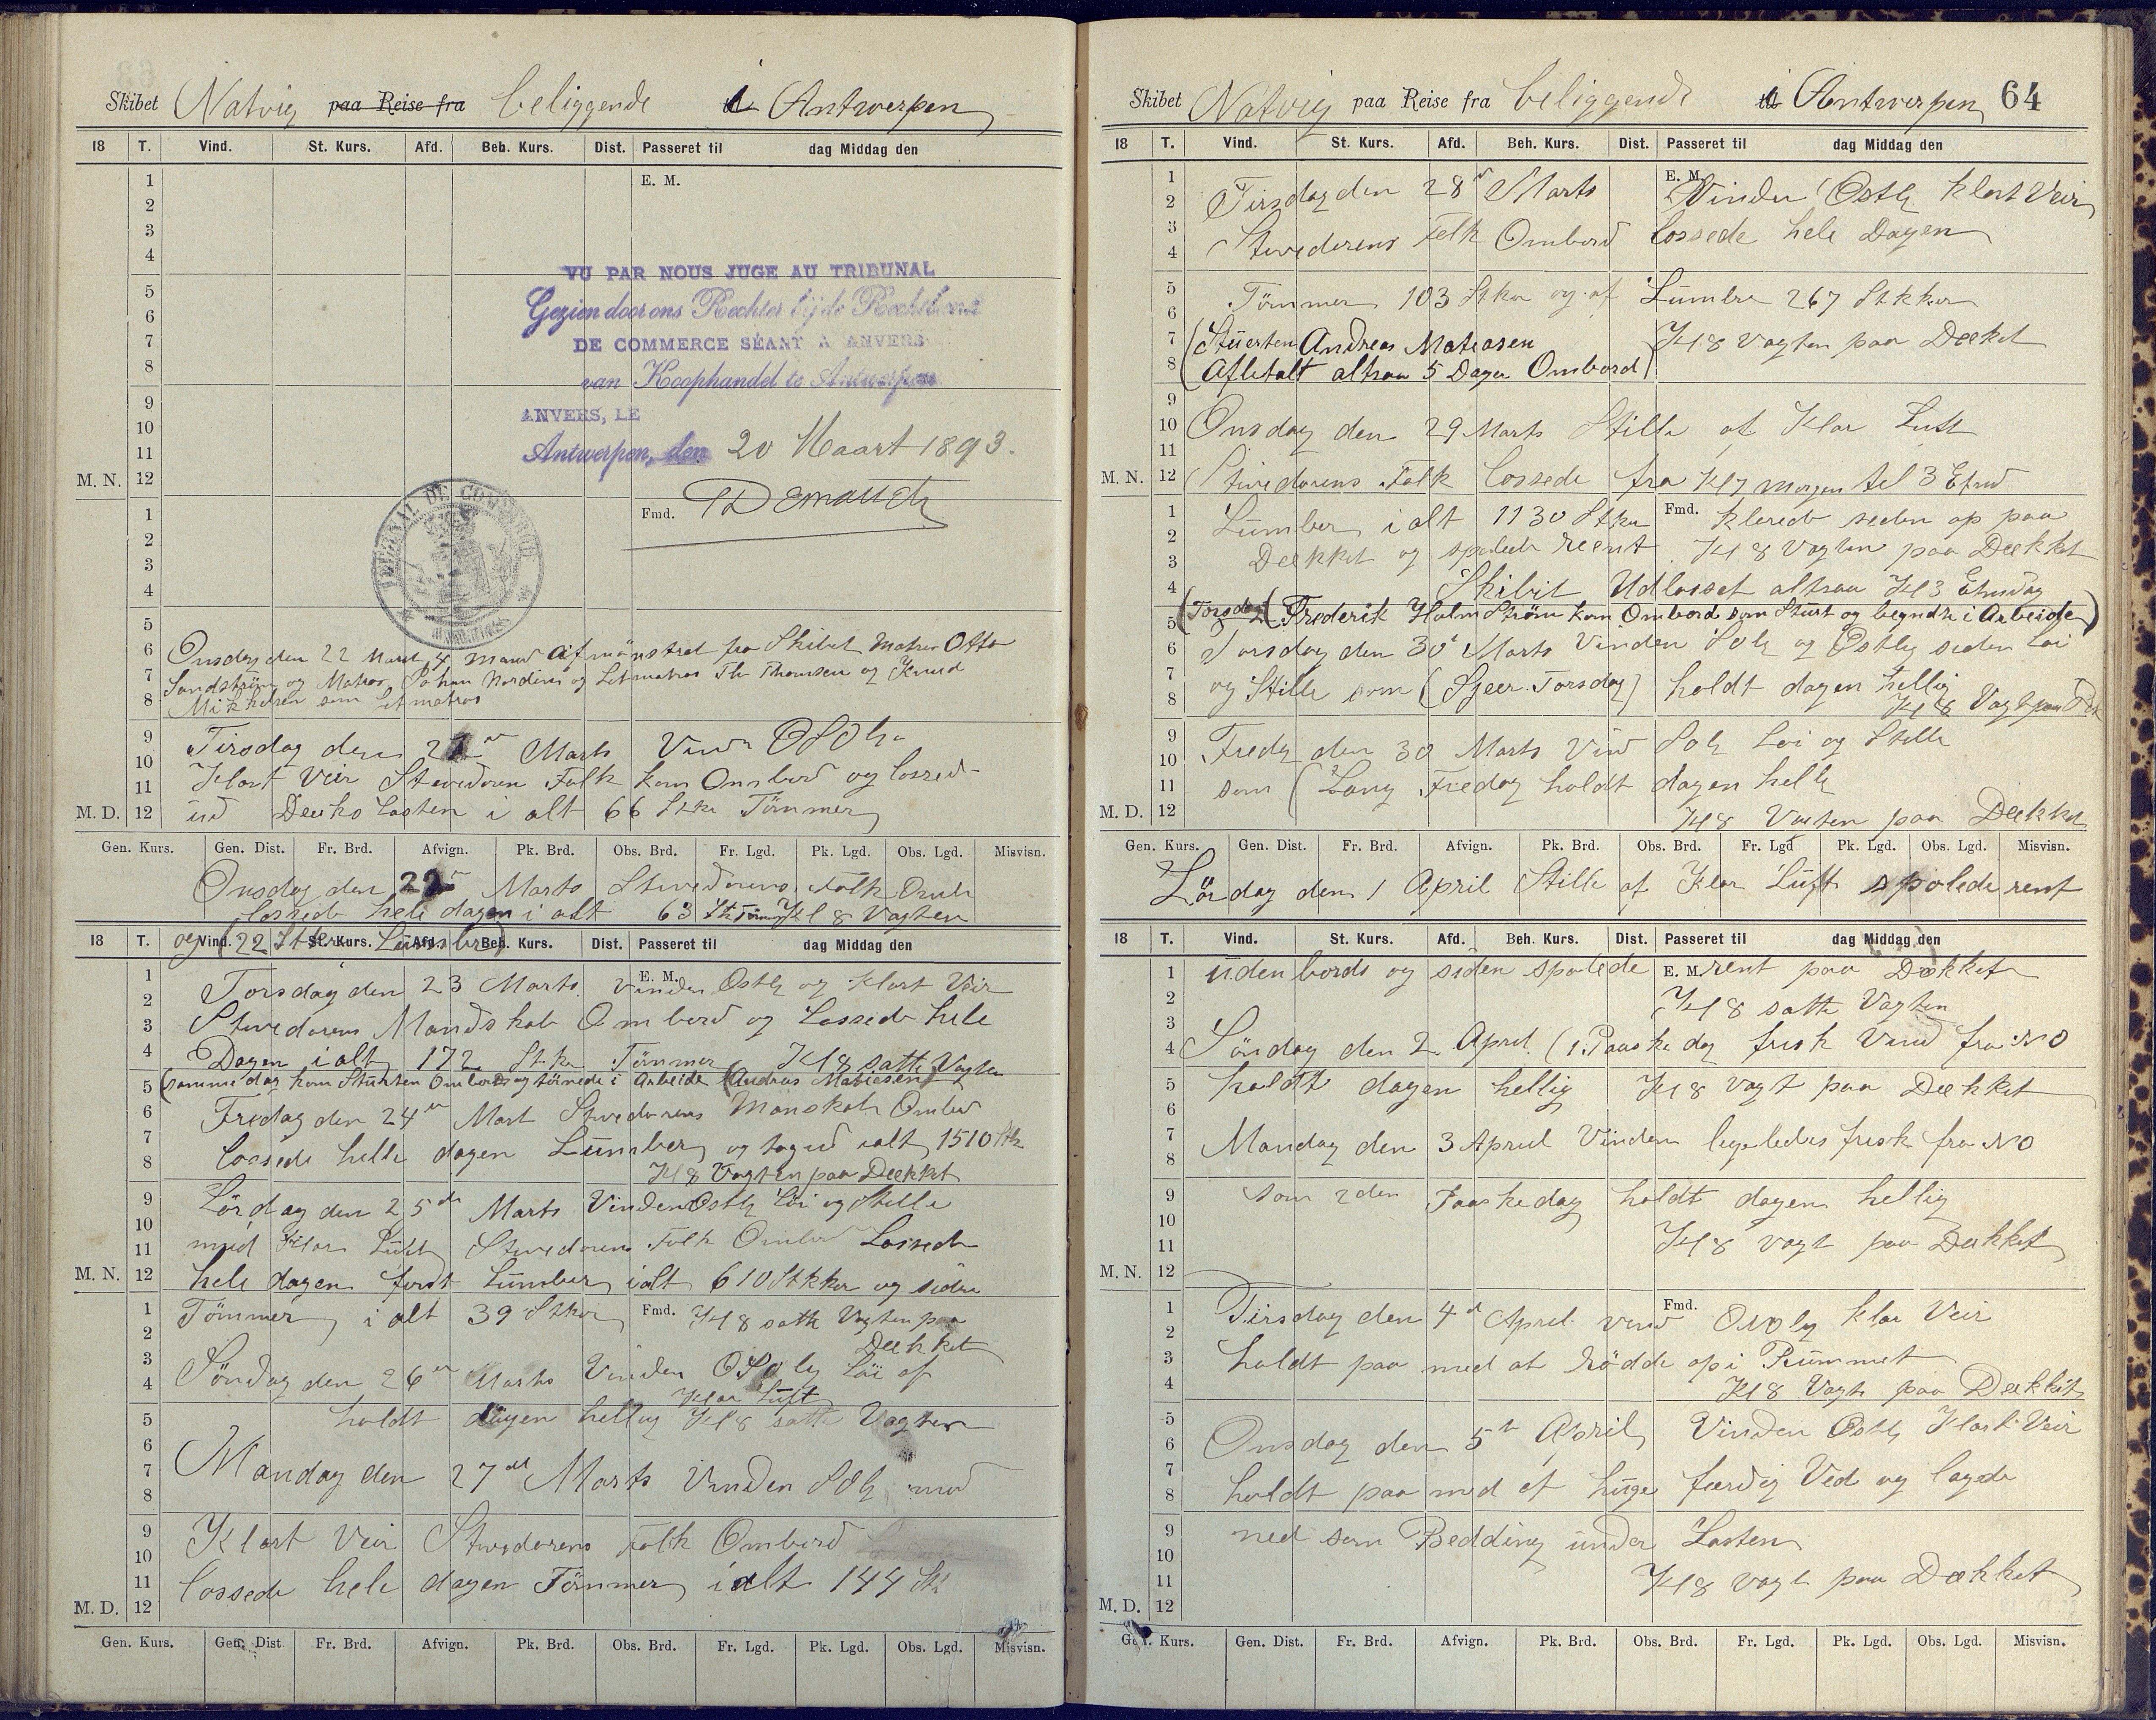 Skibet Natvig paa Reise fra beliggende i Antwerpen
18 T. Vind. St. Kurs. Afd. Beh. Kurs. Dist. Passeret til dag Middag den
1 E. M.
2
3
4
VU PAR NOUS JUGE AU TRIBUNAL
5 Gezien door ons Rechter bij de Rechtbank
6
7 DE COMMERCE SÉANT A ANVERS
8 van Koophandel te Antwerpen
9 ANVERS, LE
10
11 Antwerpen, den 20 Maart 1893.
M. N. 12
TRIBUNAL DE COMMERCE
1 Fmd.
2
3
4
5
6 Onsdag den 22 Marts 4 Mand afmönstret fra Skibet Matros Otto
7 Sandström og Matros Johan Nordins og Letmatros Th Thomsen og Knud
8 Mikkelsen som Letmatros
9 Tirsdag den Marts Vind OSOlg
10 Klart Veir Stevedoren Folk kom Ombord og lossed
11
M. D. 12 ud Deckslasten i alt 66 Stkr Tömmer
Gen. Kurs. Gen. Dist. Fr. Brd. Afvign. Pk. Brd. Obs. Brd. Fr. Lgd. Pk. Lgd. Obs. Lgd. Misvisn.
Onsdag den 22 Marts Stevedorens Folk Omb
lossede hele dagen i alt 63 Stk Tömmer Kl 8 Vagten
18 T. Vind. St. Kurs. Afd. Beh. Kurs. Dist. Passeret til dag Middag den
og 22 Stkr Lumber
1 Torsdag den 23 Marts Vinden Ostlg og klart Veir E. M.
2
3 Stevedorens Mandskab Ombord og Lossede hele
4 Dagen ialt 172 Stk Tömmer Kl 8 satte Vagten
5 (samme dag kom Stuerten Ombord og törnede i Arbeide (Andreas Matiesen)
6 Fredag den 24 Mart Stevedorens Manskab Ombord
7 lossede helle dagen Lumber og tog ud ialt 1510 Stk
8 Kl 8 Vagten paa Dekket
9 Lördag den 25de Marts Vinden Ostlg Löi og Stille
10
11 med Klar Luft Stevedorens Folk Ombord Lossede
M. N. 12 hele dagen först Lumber ialt 610 Stkker og siden
1 Tömmer i alt 39 Stkr Fmd. Kl 8 satte Vagten paa
2 Dekket
3 Söndag den 26 Marts Vinden OSOlg Löi af
4 Klar Luft
5 holdt dagen hellig Kl 8 satte Vagten
6
7 Mandag den 27de Marts Vinden SOlg med
8
9 Klart Veir Stevedorens Folk Ombord
10
11 lossede hele dagen Tömmer i alt 144 Stk
M. D. 12
Gen. Kurs. Gen. Dist. Fr. Brd. Afvign. Pk. Brd. Obs. Brd. Fr. Lgd. Pk. Lgd. Obs. Lgd. Misvisn.
Skibet Natvig paa Reise fra beliggende i Antwerpen 64
18 T. Vind. St. Kurs. Afd. Beh. Kurs. Dist. Passeret til dag Middag den
1 Tirsdag den 28 Marts E. M. Vinden Ostlg klart Veir
2
3 Stevedorens Folk Ombord lossede hele Dagen
4
5 Tömmer 103 Stkr og af Lumber 267 Stkker
6
7 (Stuerten Andreas Matiasen Kl 8 Vagten paa Decket
8 Afbetalt altsaa 5 Dage Ombord)
9
10 Onsdag den 29 Marts Stille af Klar Luft
11
M. N. 12 Stivedorens Folk Lossede fra Kl 7 morgen til 3 Efmd
1 Lumber i alt 1130 Stkr Fmd. klarede siden op paa
2
3 Dekket og spolede reent Kl 8 Vagten paa Dekket
4 Skibit Udlosset altsaa Kl 3 Etmdag
5 (Torsdag (Frederik Holmström kom Ombord som Stuert og begyndte i Arbeide)
6 Torsdag den 30 Marts Vinden SOlg og Ostlig siden Löi
7 og Stille som (Sjeer Torsdag) holdt dagen hellig
8 Kl 8 Vagt paa Dek
9 Fredg den 30 Marts Vind SOlg Löi og Stille
10
11 som (Lang Fredag holdt dagen hellg
M. D. 12 Kl 8 Vagten paa Dekket
Gen. Kurs. Gen. Dist. Fr. Brd. Afvign. Pk. Brd. Obs. Brd. Fr. Lgd Pk. Lgd. Obs. Lgd. Misvisn.
Lördag den 1 April Stille af Klar Luft spolede rent
18 T. Vind. St. Kurs. Afd. Beh. Kurs. Dist. Passeret til dag Middag den
1 udenbords og siden spolede E. M. rent paa Dækket
2 Kl 8 satte Vagten
3
4 Söndag den 2 April (1. Paaskedag frisk Vind fra NO
5 holdt dagen hellig Kl 8 vagt paa Dekket
6
7 Mandag den 3 April Vinden ligeledes frisk fra NO
8
9 som 2den Paaskedag holdt dagen hellig
10
11 Kl 8 vagt paa Dekket
M. N. 12
1 Tirsdag den 4 April vind Fmd. ONOlg klar Veir
2
3 holdt paa med at rödde op i Rummet
4 Kl 8 Vagt paa Dekket
5
6 Onsdag den 5te April Vinden Ostlg Klart Veir
7
8 holdt paa med at huge færdig Ved og lagde
9 ned som Bedding under Lasten
10
11 Kl 8 vagt paa Dækket
M. D. 12
Gen. Kurs. Gen. Dist. Fr. Brd. Afvign. Pk. Brd. Obs. Brd. Fr. Lgd. Pk. Lgd. Obs. Lgd. Misvisn.